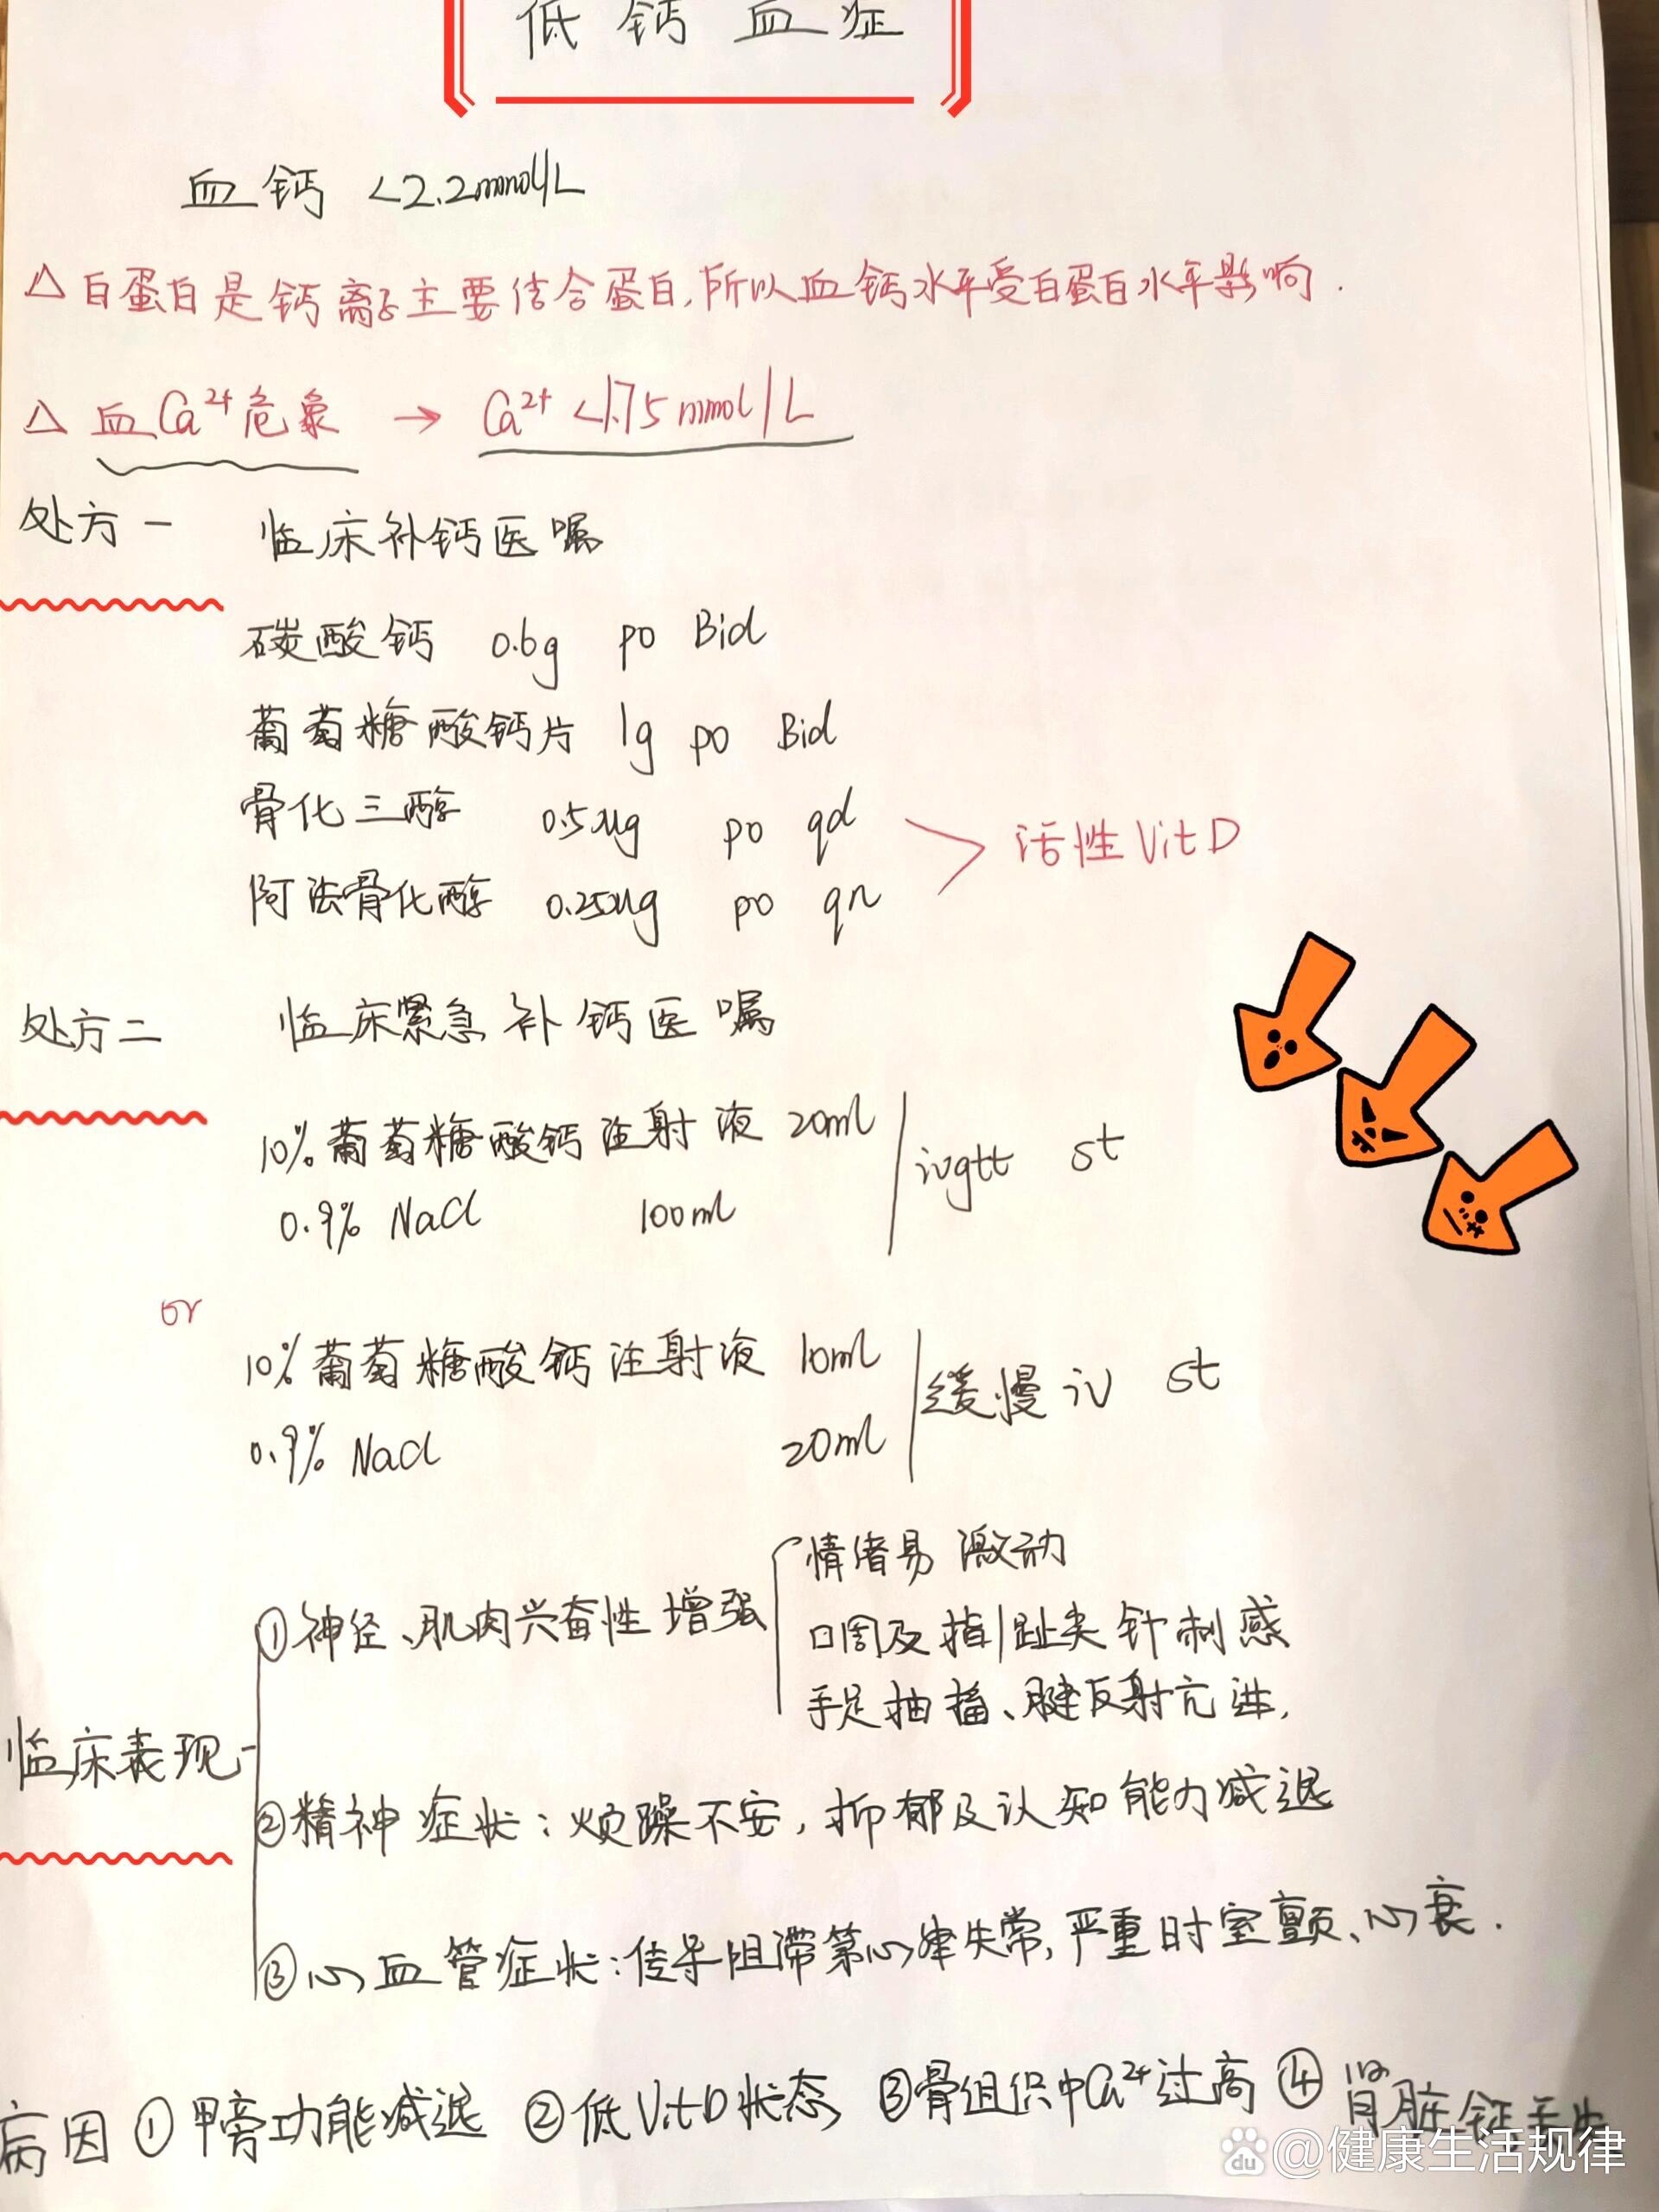 低钙血症
血钙 <2.2mmol/L
△白蛋白是钙离子主要结合蛋白,所以血钙水平受白蛋白水平影响.
△血Ca²⁺危象 → Ca²⁺ <1.75mmol/L
处方一 临床补钙医嘱
碳酸钙 0.6g po Bid
葡萄糖酸钙片 1g po Bid
骨化三醇 0.5μg po qd
活性VitD
阿法骨化醇 0.25μg po qn
处方二 临床紧急补钙医嘱
10%葡萄糖酸钙注射液 20ml
ivgtt st
0.9% NaCl 100ml
or
10%葡萄糖酸钙注射液 10ml
缓慢iv st
0.9% NaCl 20ml
情绪易激动
①神经、肌肉兴奋性增强
口周及指/趾尖针刺感
手足抽搐、腱反射亢进,
临床表现
②精神症状:烦躁不安,抑郁及认知能力减退
③心血管症状:传导阻滞等心律失常,严重时室颤、心衰.
病因 ①甲旁功能减退 ②低VitD状态 ③骨组织中Ca²⁺过高 ④肾脏钙丢
du @健康生活规律